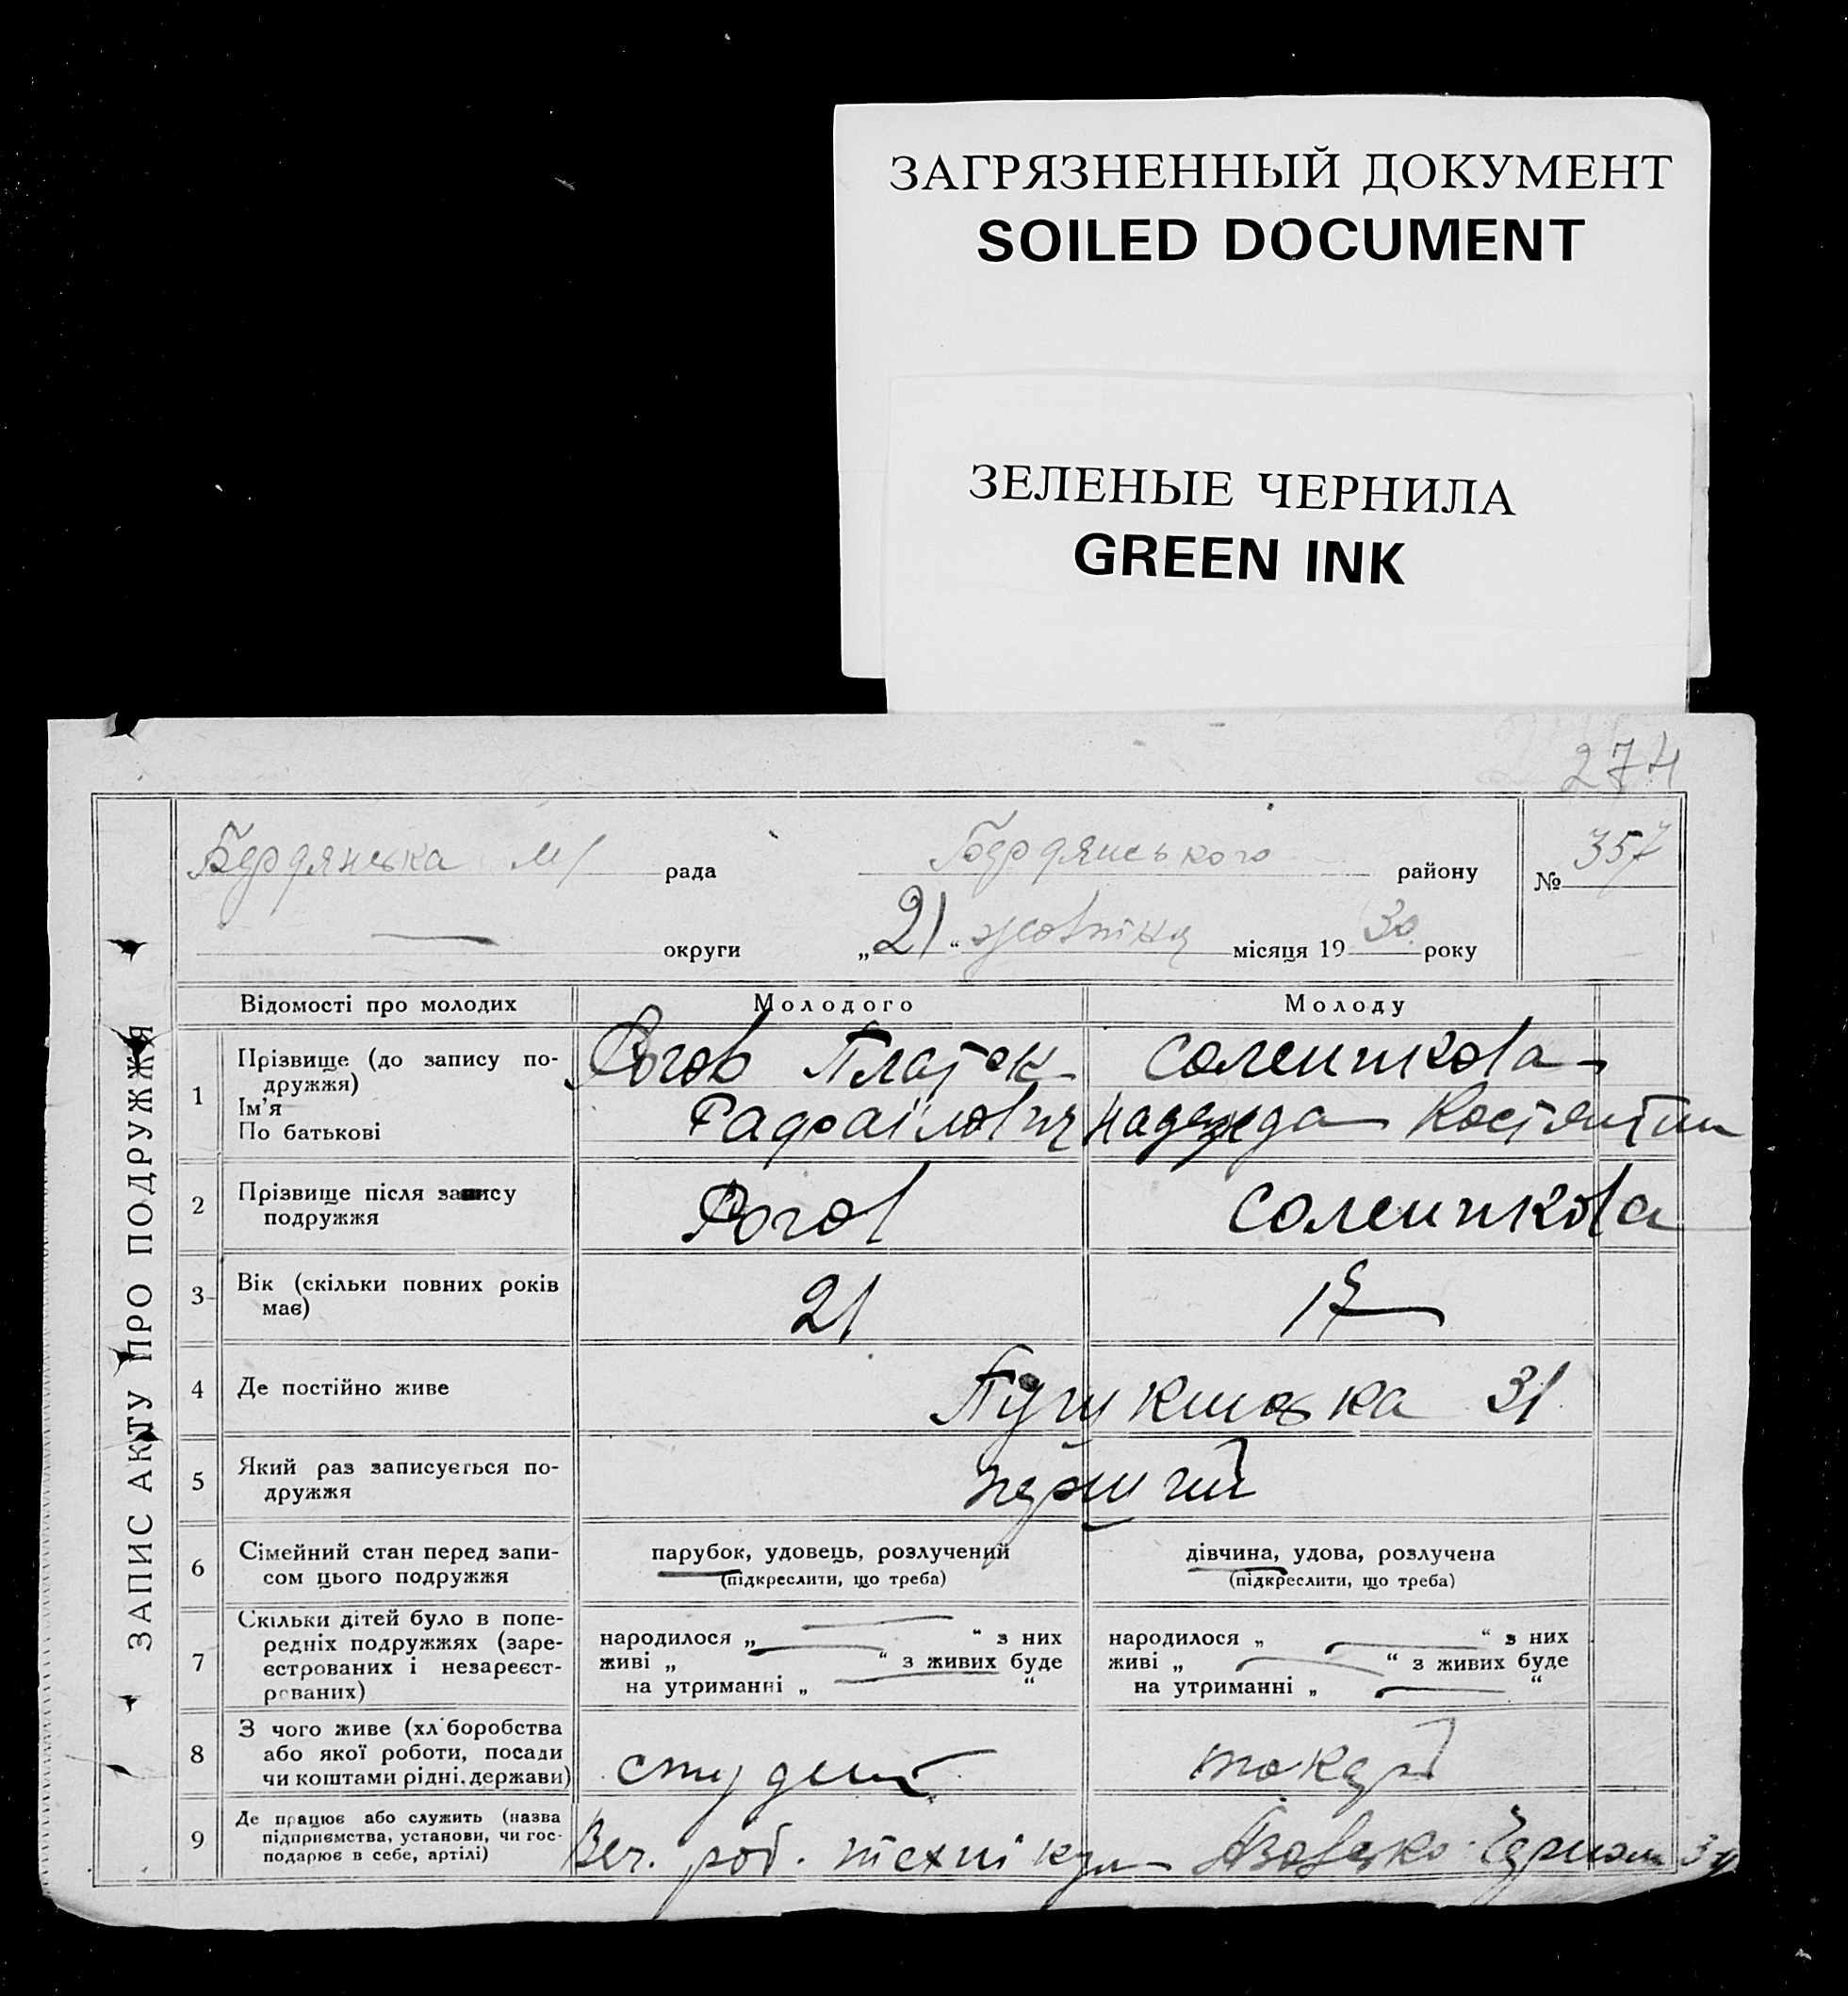 ЗАГРЯЗНЕННЫЙ ДОКУМЕНТ
SOILED DOCUMENT
ЗЕЛЕНЫЕ ЧЕРНИЛА
GREEN INK
274
Бердянська м/ рада Бердянського району № 357
округи „21“ жовтня місяця 1930 року
ЗАПИС АКТУ ПРО ПОДРУЖЖЯ
Відомості про молодих Молодого Молоду
1 Прізвище (до запису по-
дружжя)
Ім'я
По батькові
Рогов
Рафаілович
Соленикова
Надежда Костянтин
2 Прізвище після запису
подружжя
Рогов
Соленикова
3 Вік (скільки повних років
має)
21
17
4 Де постійно живе
Пушкинська 31
5 Який раз записується по-
дружжя
перший
6 Сімейний стан перед запи-
сом цього подружжя
парубок, удовець, розлучений
(підкреслити, що треба)
дівчина, удова, розлучена
(підкреслити, що треба)
7 Скільки дітей було в попе-
редніх подружжях (заре-
єстрованих і незареєст-
рованих)
народилося „ “ з них
живі „ “ з живих буде
на утриманні „ “
народилося „ “ з них
живі „ “ з живих буде
на утриманні „ “
8 З чого живе (хліборобства
або якої роботи, посади
чи коштами рідні, держави)
студент
токарь
9 Де працює або служить (назва
підприємства, установи, чи гос-
подарює в себе, артілі)
Веч. роб. технікум
Азовсько-Чорном